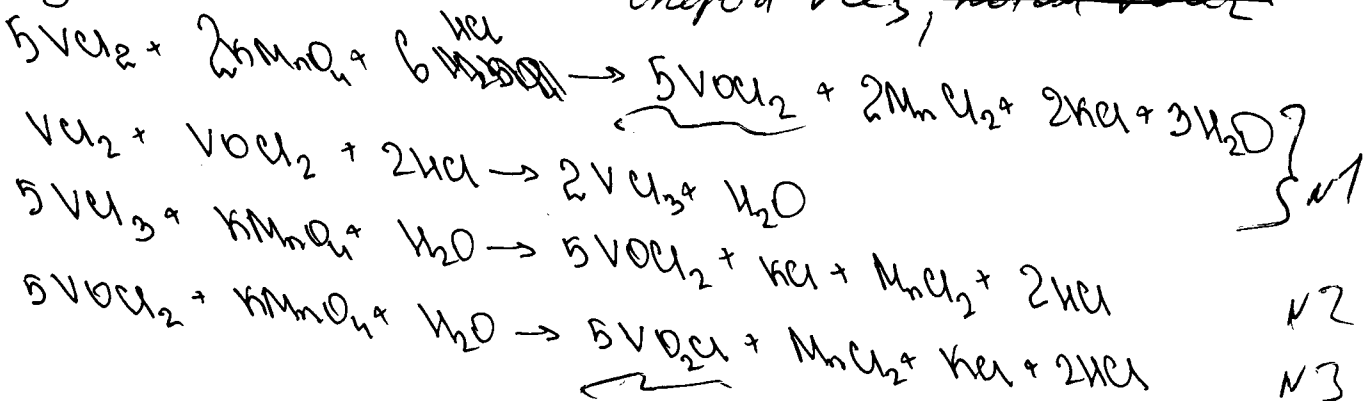 VCl3,
5VCl2 + 2KMnO4 + 6 HCl → 5VOCl2 + 2MnCl2 + 2KCl + 3H2O
VCl2 + VOCl2 + 2HCl → 2VCl3 + H2O } N1
5VCl3 + KMnO4 + H2O → 5VOCl2 + KCl + MnCl2 + 2HCl N2
5VOCl2 + KMnO4 + H2O → 5VO2Cl + MnCl2 + KCl + 2HCl N3